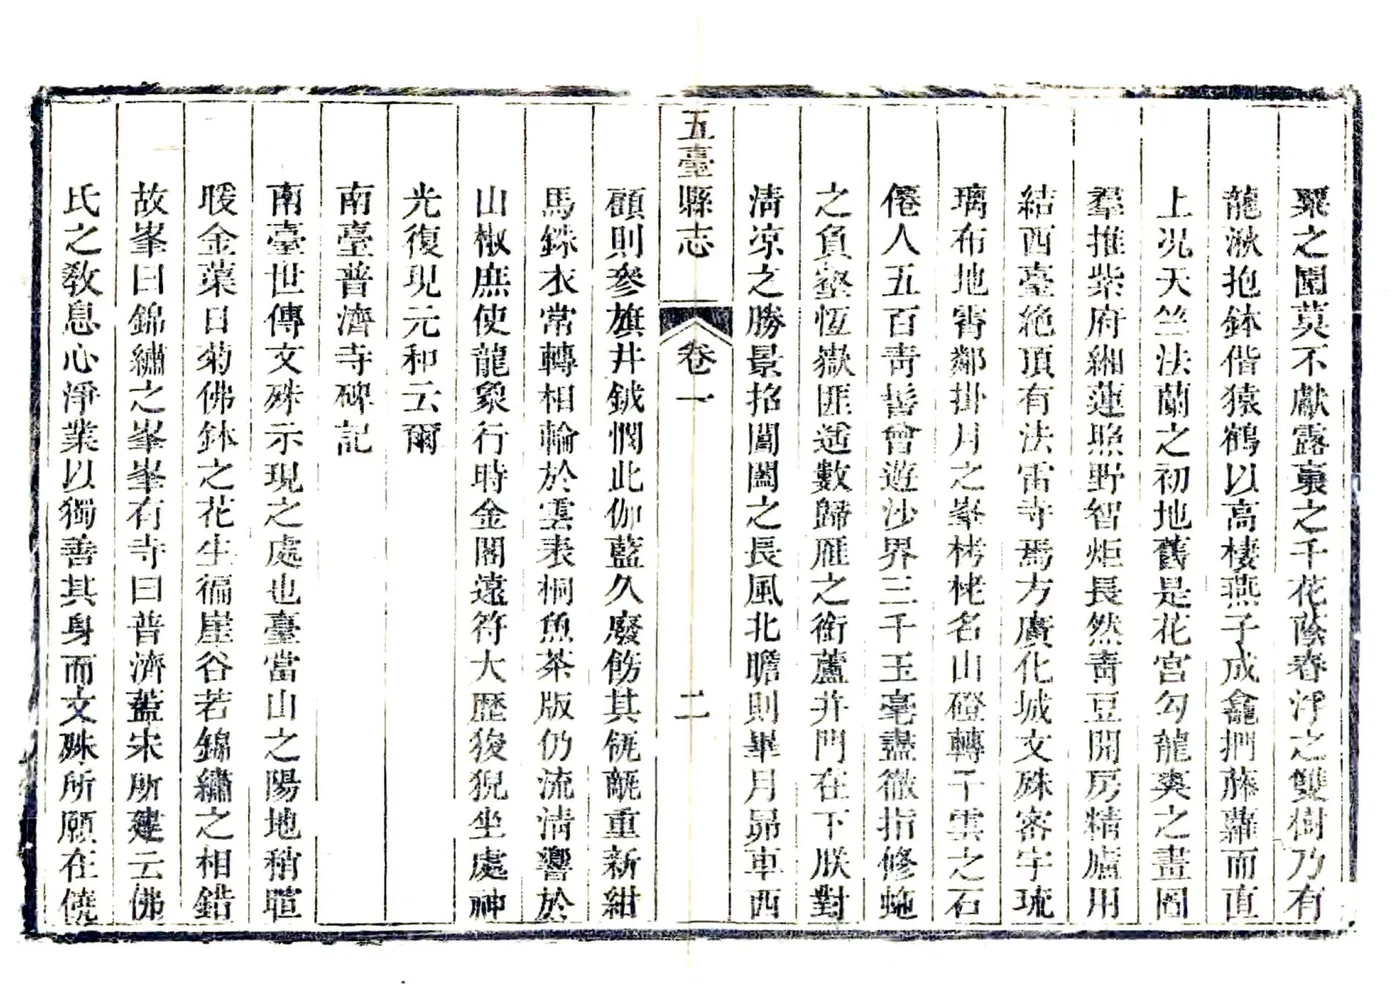 粟之園莫不獻露裛之千花蔭春浮之雙樹乃有
龍湫抱鉢偕猿鶴以高棲燕子成龕捫藤蘿而直
上况天竺法蘭之初地舊是花宮勾龍爽之畫圖
羣推紫府緗蓮照野智炬長然靑豆開房精廬用
結西臺絶頂有法雷寺焉方廣化城文殊密宇琉
璃布地霄鄰掛月之峯栲栳名山磴轉干雲之石
僊人五百靑髻曾遊沙界三千玉毫盡徹指修蛇
之負壑恆嶽匪遥數歸雁之銜蘆井門在下朕對
淸凉之勝景挹閶闔之長風北瞻則畢月昴車西
五臺縣志
卷一
二
顧則參旗井鉞憫此伽藍久廢飭其瓴甋重新紺
馬銖衣常轉相輪於雲表桐魚茶版仍流淸響於
山椒庶使龍象行時金閣遠符大歴狻猊坐處神
光復現元和云爾
南臺普濟寺碑記
南臺世傳文殊示現之處也臺當山之陽地稍暄
暖金葉日菊佛鉢之花生徧崖谷若錦繡之相錯
故峯曰錦繡之峯峯有寺曰普濟蓋宋所建云佛
氏之敎息心淨業以獨善其身而文殊所願在饒